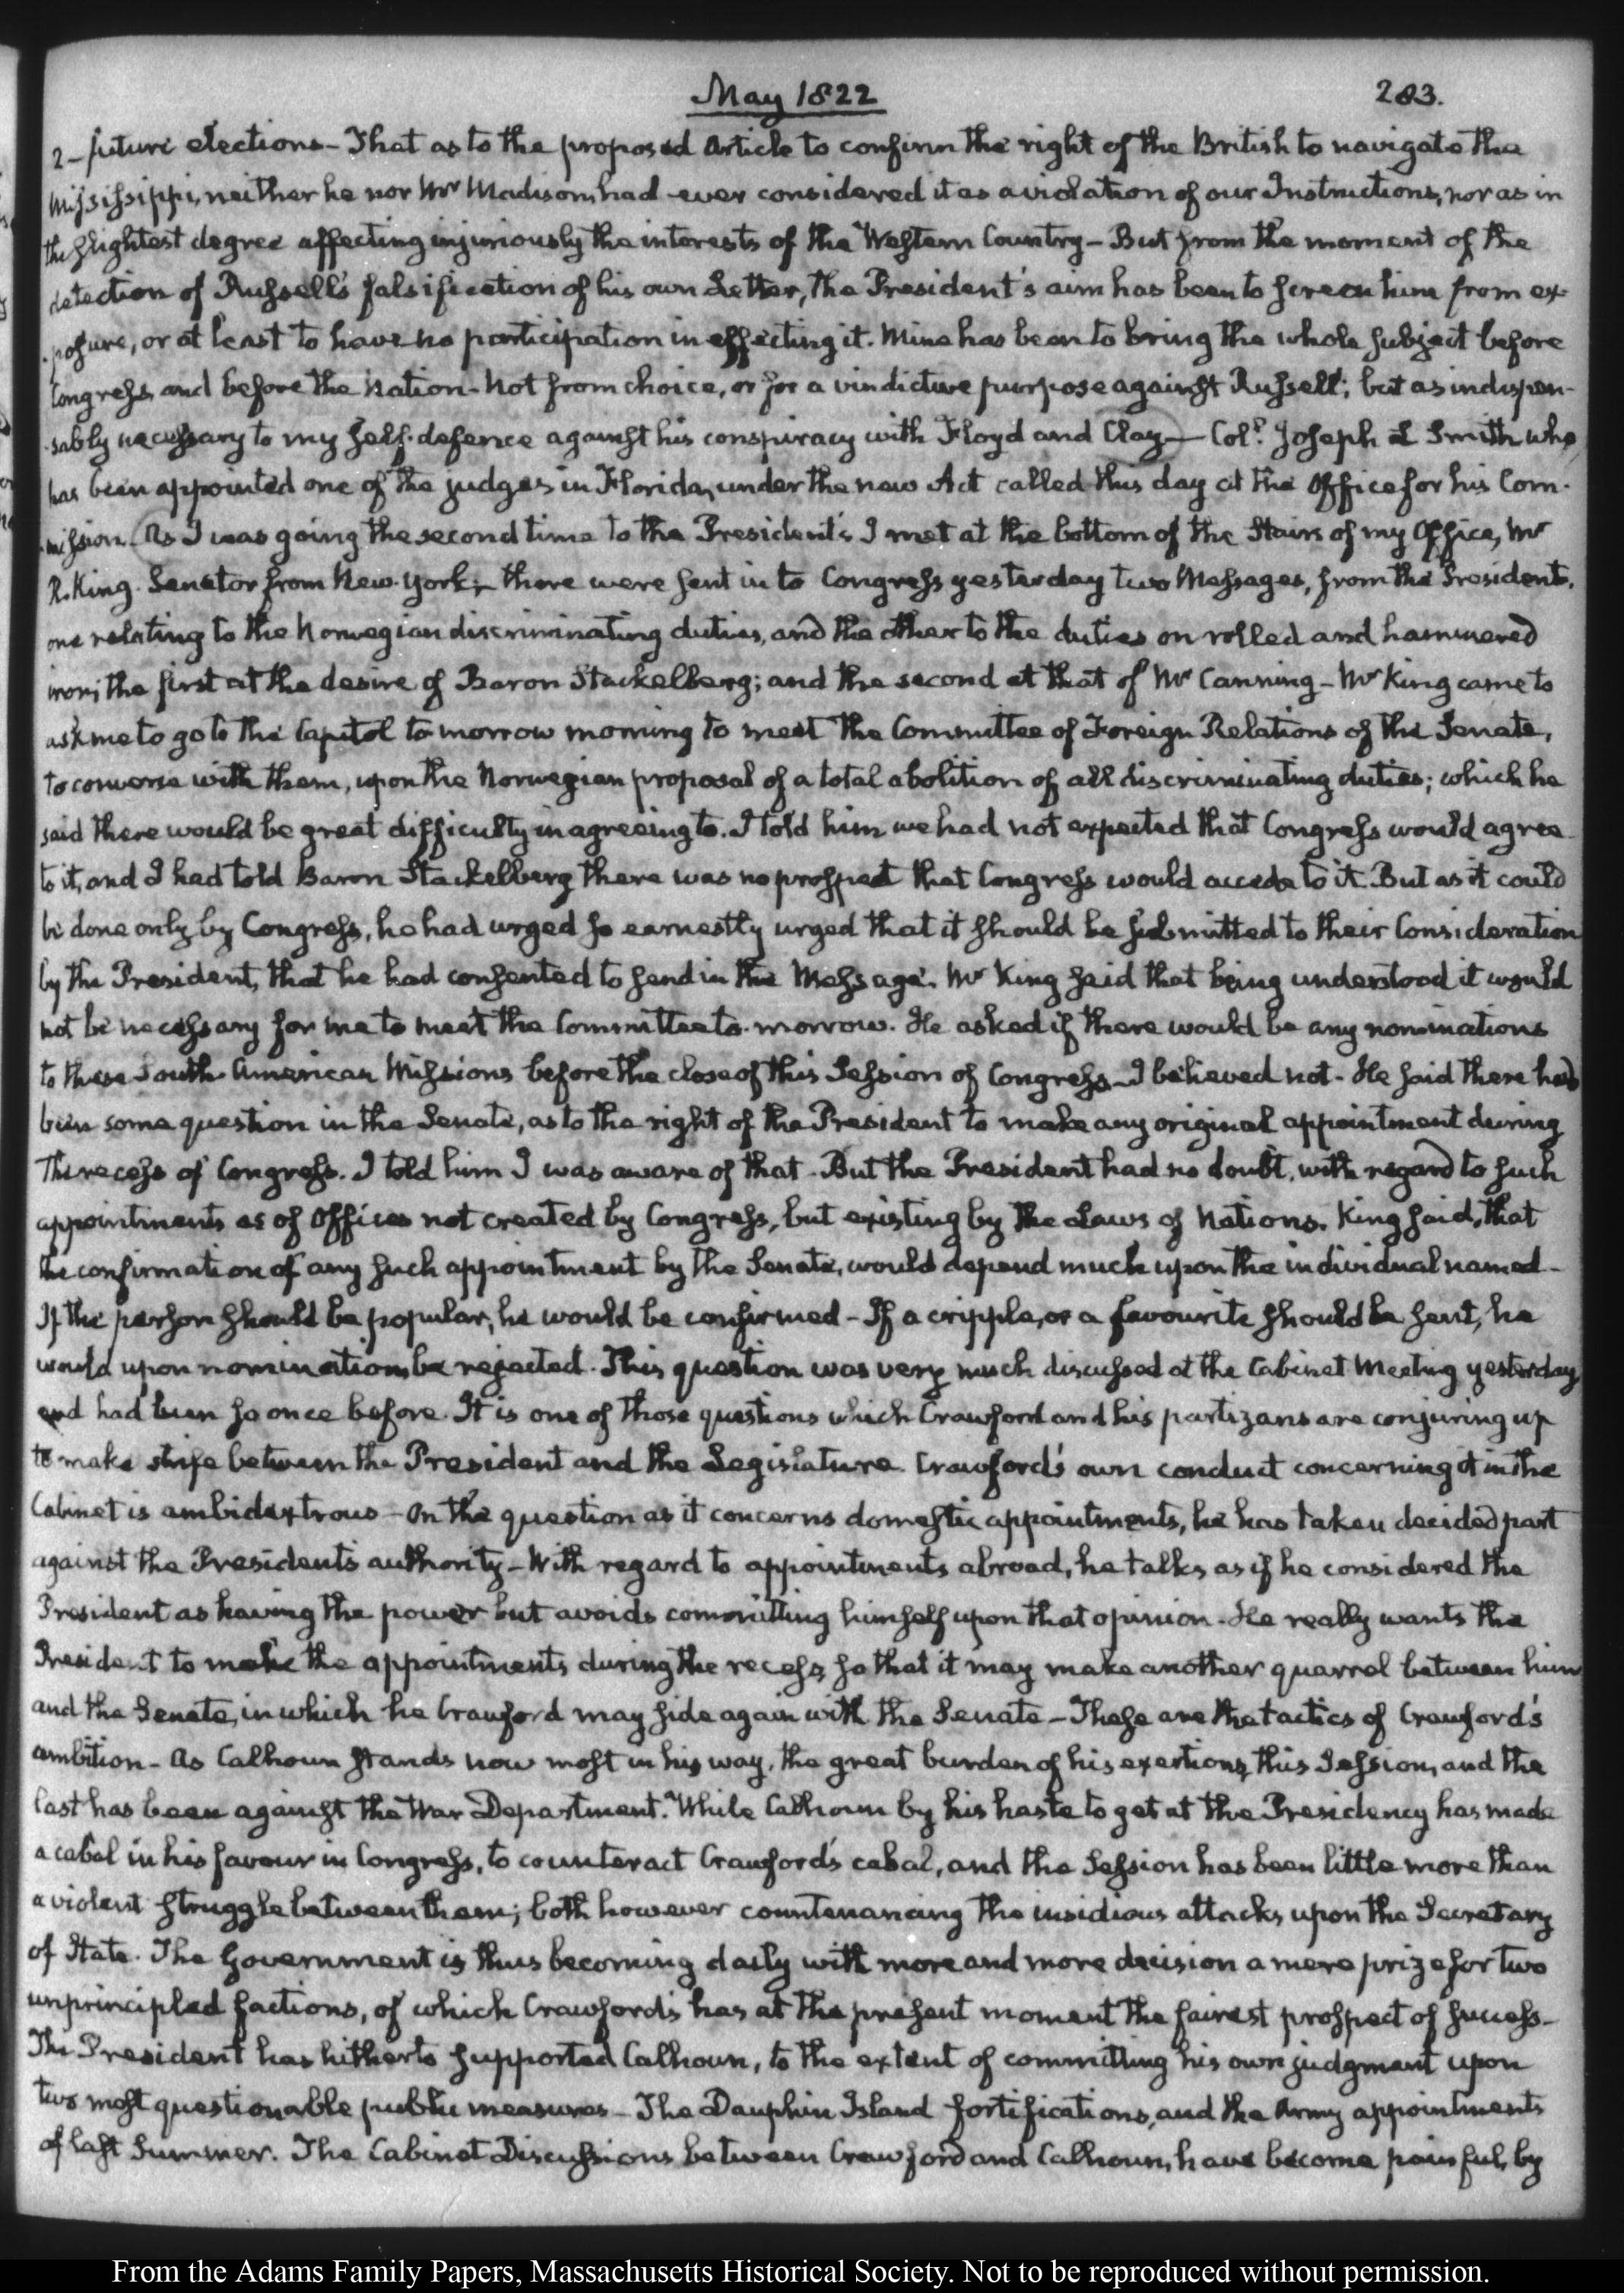 May 1822
283.
2 – future elections – That as to the proposed Article to confirm the right of the British to navigate the
Mississippi, neither he nor Mr Madison, had ever considered it as a violation of our Instructions, nor as in
the slightest degree affecting injuriously the interests of the Western Country – But from the moment of the
detection of Russell's falsification of his own Letter, the President's aim has been to screen him from ex-
posure, or at least to have no participation in effecting it. Mine has been to bring the whole subject before
Congress, and before the Nation – Not from choice, or for a vindictive purpose against Russell; but as indispen-
sably necessary to my self-defence against his conspiracy with Floyd and Clay – Coll. Joseph L Smith who
has been appointed one of the judges in Florida, under the new Act called this day at the Office for his Com-
mission. As I was going the second time to the President's I met at the bottom of the Stairs of my Office, Mr
R. King. Senator from New-York; there were sent in to Congress yesterday two Messages, from the President.
one relating to the Norwegian discriminating duties, and the other to the duties on rolled and hammered
iron; the first at the desire of Baron Stackelberg; and the second at that of Mr Canning – Mr King came to
ask me to go to the Capitol to-morrow morning to meet the Committee of Foreign Relations of the Senate,
to converse with them, upon the Norwegian proposal of a total abolition of all discriminating duties; which he
said there would be great difficulty in agreeing to. I told him we had not expected that Congress would agree
to it, and I had told Baron Stackelberg there was no prospect that Congress would accede to it. But as it could
be done only by Congress, he had urged so earnestly urged that it should be submitted to their Consideration
by the President, that he had consented to send in the Message. Mr King said that being understood it would
not be necessary for me to meet the Committee to-morrow. He asked if there would be any nominations
to these South-American Missions before the close of this Session of Congress – I believed not – He said there had
been some question in the Senate, as to the right of the President to make any original appointment during
The recess of Congress. I told him I was aware of that – But the President had no doubt, with regard to such
appointments as of Offices not created by Congress, but existing by the Laws of Nations. King said, that
the confirmation of any such appointment by the Senate, would depend much upon the individual named –
If the person should be popular, he would be confirmed – If a cripple, or a favourite should be sent, he
would upon nomination be rejected. This question was very much discussed at the Cabinet Meeting yesterday
and had been so once before. It is one of those questions which Crawford and his partizans are conjuring up
to make strife between the President and the Legislature. Crawford's own conduct concerning it in the
Cabinet is ambidextrous – On the question as it concerns domestic appointments, he has taken decided part
against the President's authority – With regard to appointments abroad, he talks as if he considered the
President as having the power but avoids committing himself upon that opinion – He really wants the
President to make the appointments during the recess, so that it may make another quarrel between him
and the Senate, in which he Crawford may side again with the Senate – These are the tactics of Crawford's
ambition – As Calhoun stands now most in his way, the great burden of his exertions, this Session, and the
last has been against the War Department. While Calhoun by his haste to get at the Presidency has made
a cabal in his favour in Congress, to counteract Crawford's cabal, and the Session has been little more than
a violent struggle between them; both however countenancing the insidious attacks upon the Secretary
of State. The Government is thus becoming daily with more and more decision a mere prize for two
unprincipled factions, of which Crawford's has at the present moment the fairest prospect of success –
The President has hitherto supported Calhoun, to the extent of committing his own judgment upon
two most questionable public measures – The Dauphin Island fortifications, and the Army appointments
of last Summer. The Cabinet Discussions between Crawford and Calhoun, have become painful, by
From the Adams Family Papers, Massachusetts Historical Society. Not to be reproduced without permission.